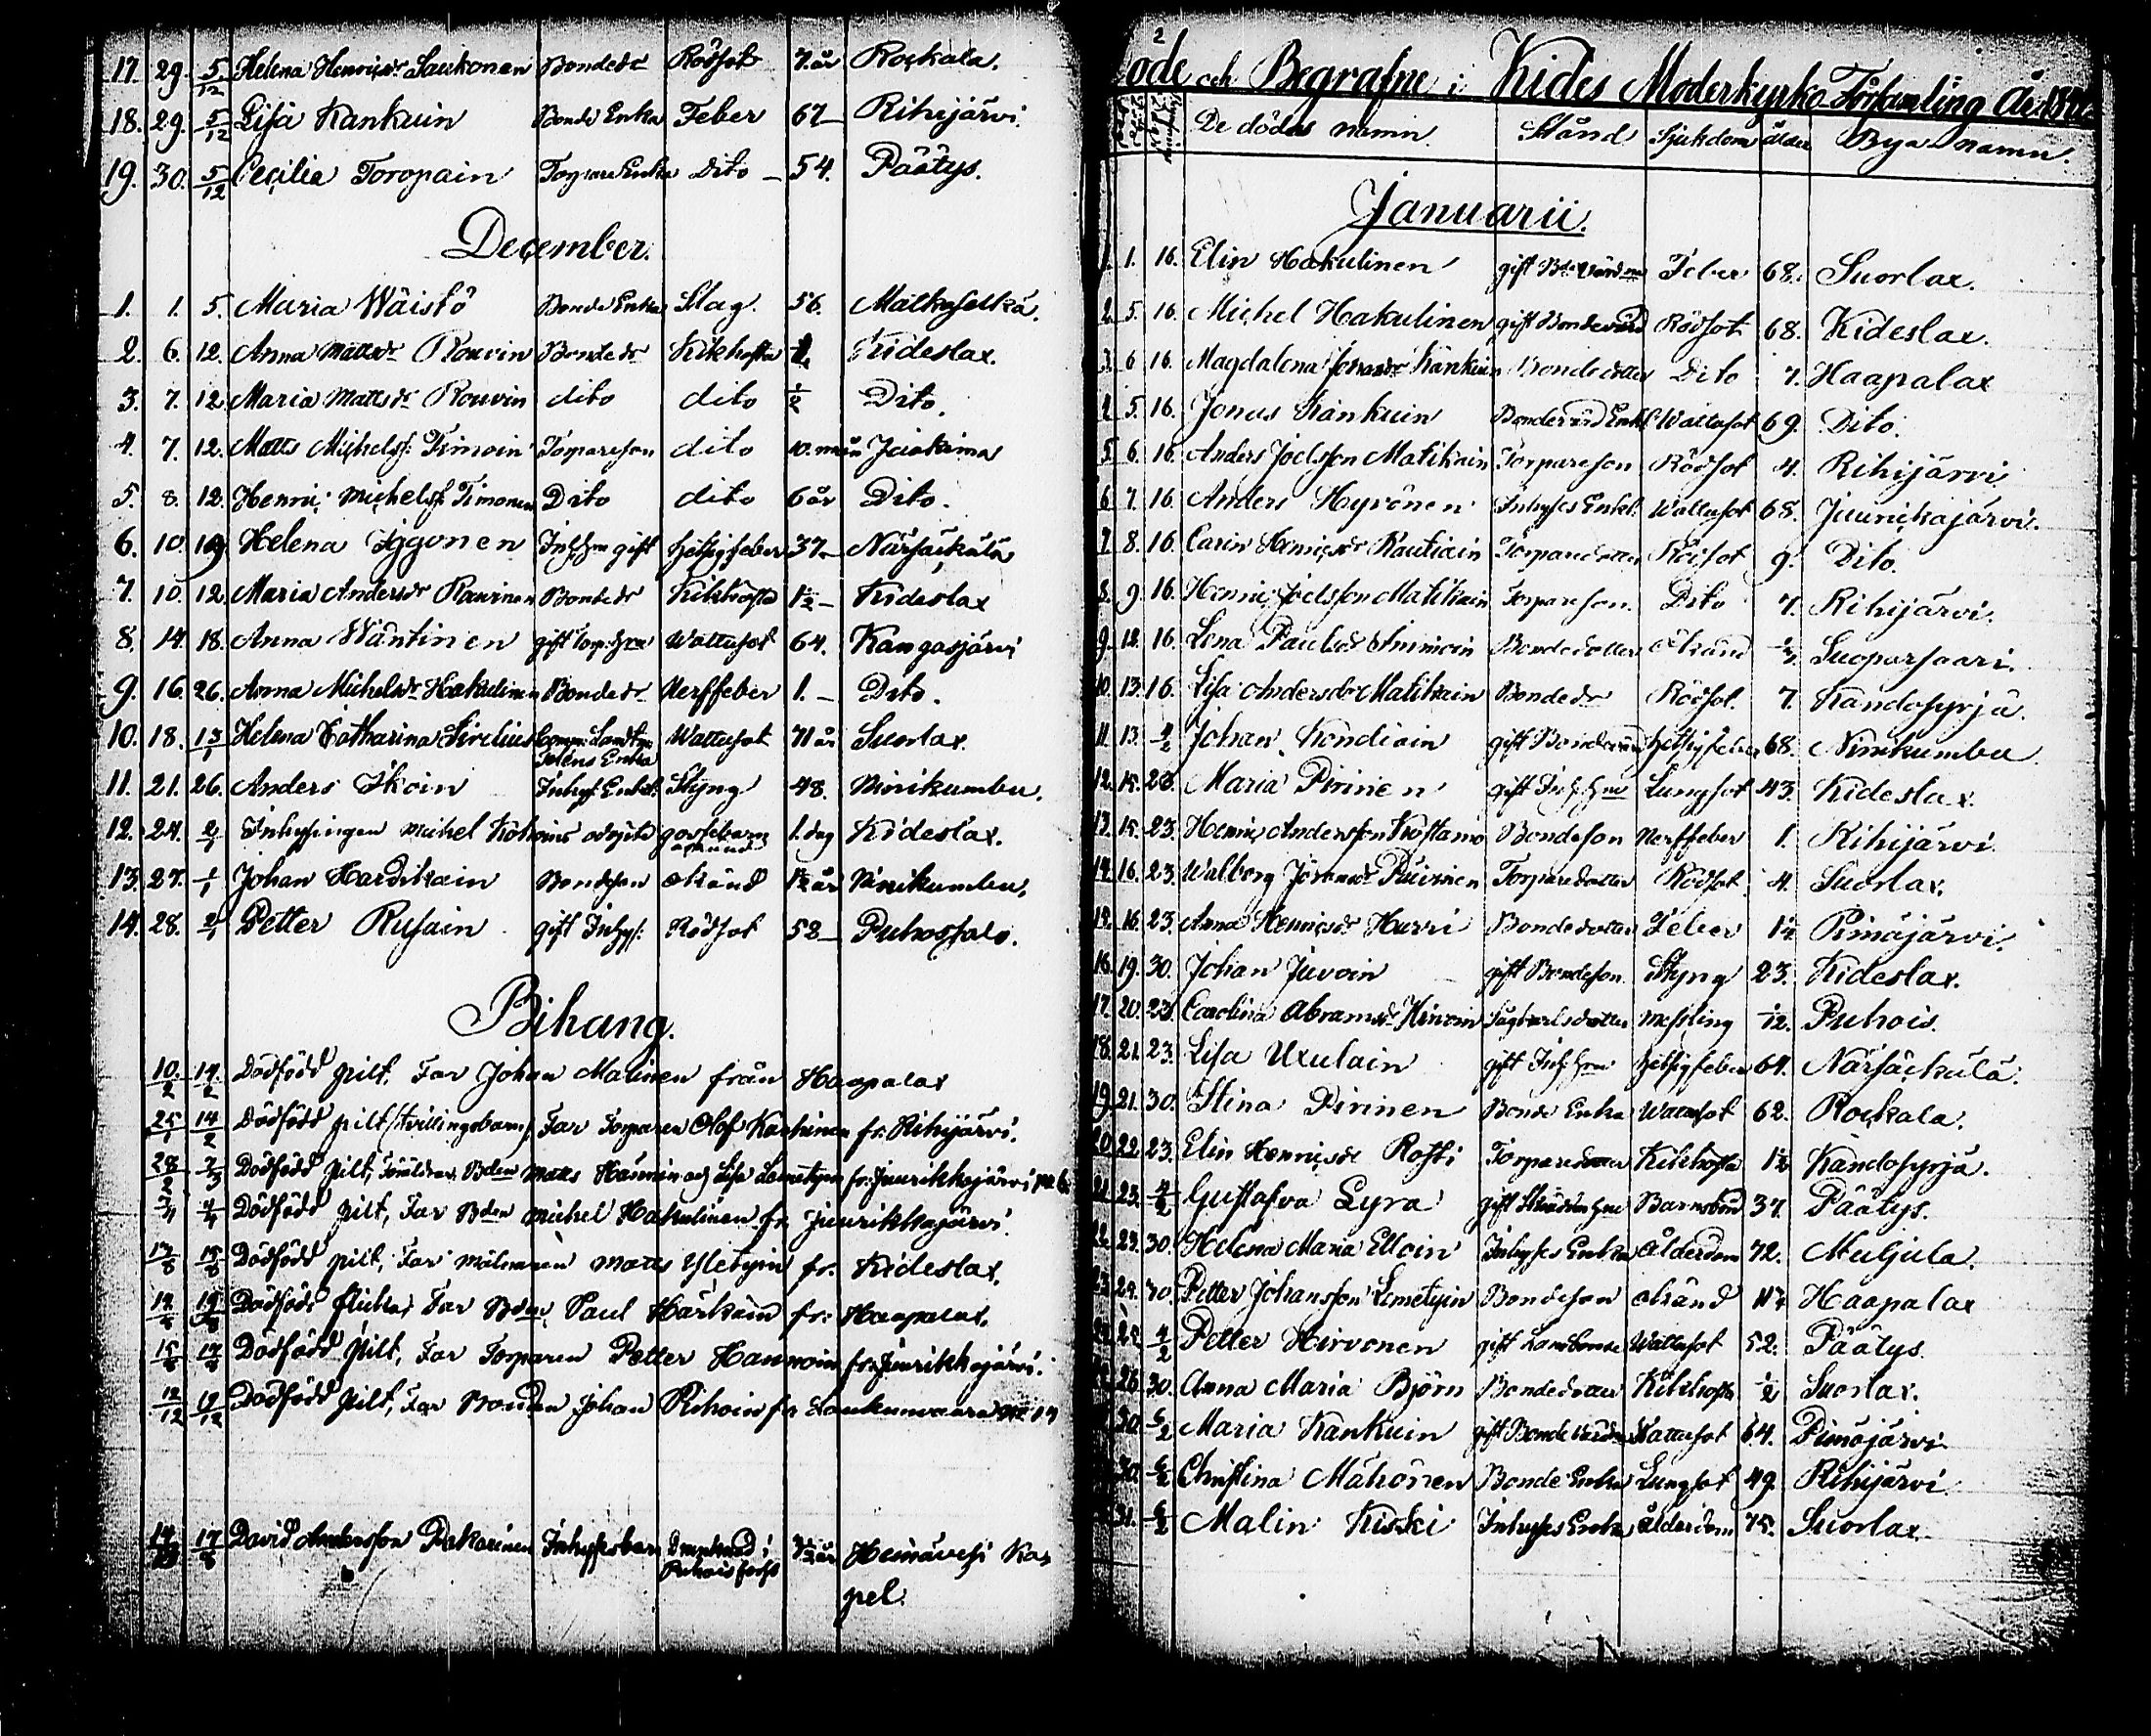 17. 29. 5/12 Helena Henricsdr Saukonen Bondedr Rödsot 7. år Rockala.
18. 29. 5/12 Lisa Kankuin Bonde Enka Feber 67 Rihijärvi.
19. 30. 5/12 Cecilia Toropain Torpare Enka Dito 54. Päätys.
December.
1. 1. 5. Maria Wäistö Bonde Enka Slag. 56. Matkaselkä.
2. 6. 12. Anna Mattsdr Rouvin Bondedr Kikhosta Kideslax.
3. 7. 12. Maria Mattsdr Rouvin dito dito 1/2 Dito.
4. 7. 12. Matts Michelss. Timoin Torpareson dito 10. mån Jaakima
5. 8. 12. Henric Michelss. Timonen Dito dito 6 år Dito.
6. 10. 19 Helena Iggonen Inh. hm gift hetsigfeber 37 Närsäckälä
7. 10. 12. Maria Andersdr Rauvinen Bondedr Kikhosta 1 1/2 Kideslax
8. 14. 18. Anna Wäntinen gift Torp. hm Wattusot 64. Kangasjärvi
9. 16. 26. Anna Michelsdr Hakulinen Bondedr Nerffeber 1. Dito.
10. 18. 13/1 Helena Catharina Sirelius Wattusot 71 år Suorlax.
Enka
11. 21. 26. Anders Ikoin Inhys. Enkl. Styng 48. Ninikumbu.
12. 24. 2/1 Inhysingen Michel odöpta gossebarn 1. dag Kideslax.
okänd
13. 27. 1/1 Johan Hardikain Bondeson okänd 1 1/2 år Ninikumbu.
14. 28. 2/1 Petter Rusain gift Inhys. Rödsot 58 Puhossalo.
Bihang.
10/2 14/2 Dödfödd pilt. Far Johan Malinen från Haapalax
25/1 14/2 Dödfödd pilt (tvillingsbarn) Far Torparen Olof Karhinen fr. Rihijärvi.
28/2 7/3 Dödfödd pilt, Föräldrar Bden Matts och Lisa fr. Juurikkajärvi
3/4 4/4 Dödfödd pilt, Far Bden Michel Hakulinen fr. Juurikkajärvi.
Dödfödd pilt, Far Matts fr. Kideslax.
Dödfödd flicka, Far Bden Paul Härkäin fr. Haapalax.
Dödfödd pilt, Far Torparen Petter fr. Juurikkajärvi.
Dödfödd pilt, Far Bonden Johan Rihoin fr.
David Andersson Pakarinen Inhysesbarn 3 1/2 år Heinävesi Kap
pel.
2
öde och Begrafne i Kides Moderkyrko Församling År
De dödas namn. Stånd Sjukdom ålder Bya namn.
Januarii.
1. 1. 16. Elin Hakulinen gift Feber 68. Suorlax.
2. 5. 16. Michel Hakulinen gift Bondevärd Rödsot 68. Kideslax.
3. 6 16. Magdalena Jonasdr Kankuin Bondedotter Dito 7. Haapalax
4. 5. 16. Jonas Kankuin Bondevärd Enkl. Wattusot 69. Dito.
5. 6. 16. Anders Joelsson Matikain Torpareson Rödsot 4. Rihijärvi
6 7. 16. Anders Hyvönen Inhyses Enkl. Wattusot 68. Juurickajärvi.
7 8. 16. Carin Henricsdr Rautiain Torparedotter Rödsot 9. Dito.
8. 9 16. Henric Joelsson Matikain Torpareson. Dito 7. Rihijärvi.
9. 12. 16. Lena Paulsdr Imnoin Bondedotter okänd Suoparsaari.
10. 13. 16. Lisa Andersdr Matikain Bondedr Rödsot. 7. Kandosyrjä.
11. 13. 4/2 Johan Kondiain gift Bondevärd hetsigfeber 68. Ninikumbu
12. 15. 23. Maria Pirinen gift Inh. hm Lungsot 43. Kideslax.
13. 15. 23. Henric Andersson Kostamo Bondeson Nerffeber 1. Rihijärvi.
14. 16. 23. Walborg Göransdr Puivinen Torparedotter Rödsot 4. Suorlax.
15. 16. 23. Anna Henricsdr Hurri Bondedotter Feber Pimäjärvi.
16. 19. 30. Johan Juvoin gift Bondeson. Styng 23. Kideslax.
17. 20. 23. Carolina Abramsdr Hirvoin Messling Puhois.
18. 21. 23. Lisa Uxulain gift Inh. hm hetsigfeber 64. Närsäckälä.
19. 21. 30. Stina Pirinen Bonde Enka Wattusot 62. Rockala.
20 22. 23. Elin Henricsdr Rosti Torparedotter Kikhosta 1 1/2 Kandosyrjä.
21. 23. 4/2 Gustafva Lyra gift Barnsbörd 37. Päätys.
22. 23. 30. Helena Maria Elloin Inhyses Enka Ålderdom 72. Muljula.
23. 24. 30. Petter Johansson Lemetyin Bondeson okänd Haapalax
24. 25. 4/2 Petter Hirvonen gift Landbonde Wattusot 52. Päätys.
26. 30. Anna Maria Björn Bondedotter Kikhosta 1/2 Suorlax.
30. 6/2 Maria Kankuin gift Wattusot 64. Pimäjärvi
30. 6/2 Christina Mähönen Bonde Enka Lungsot 49. Rihijärvi
31. 6/2 Malin Kiski Inhyses Enka Ålderdom 75. Suorlax.